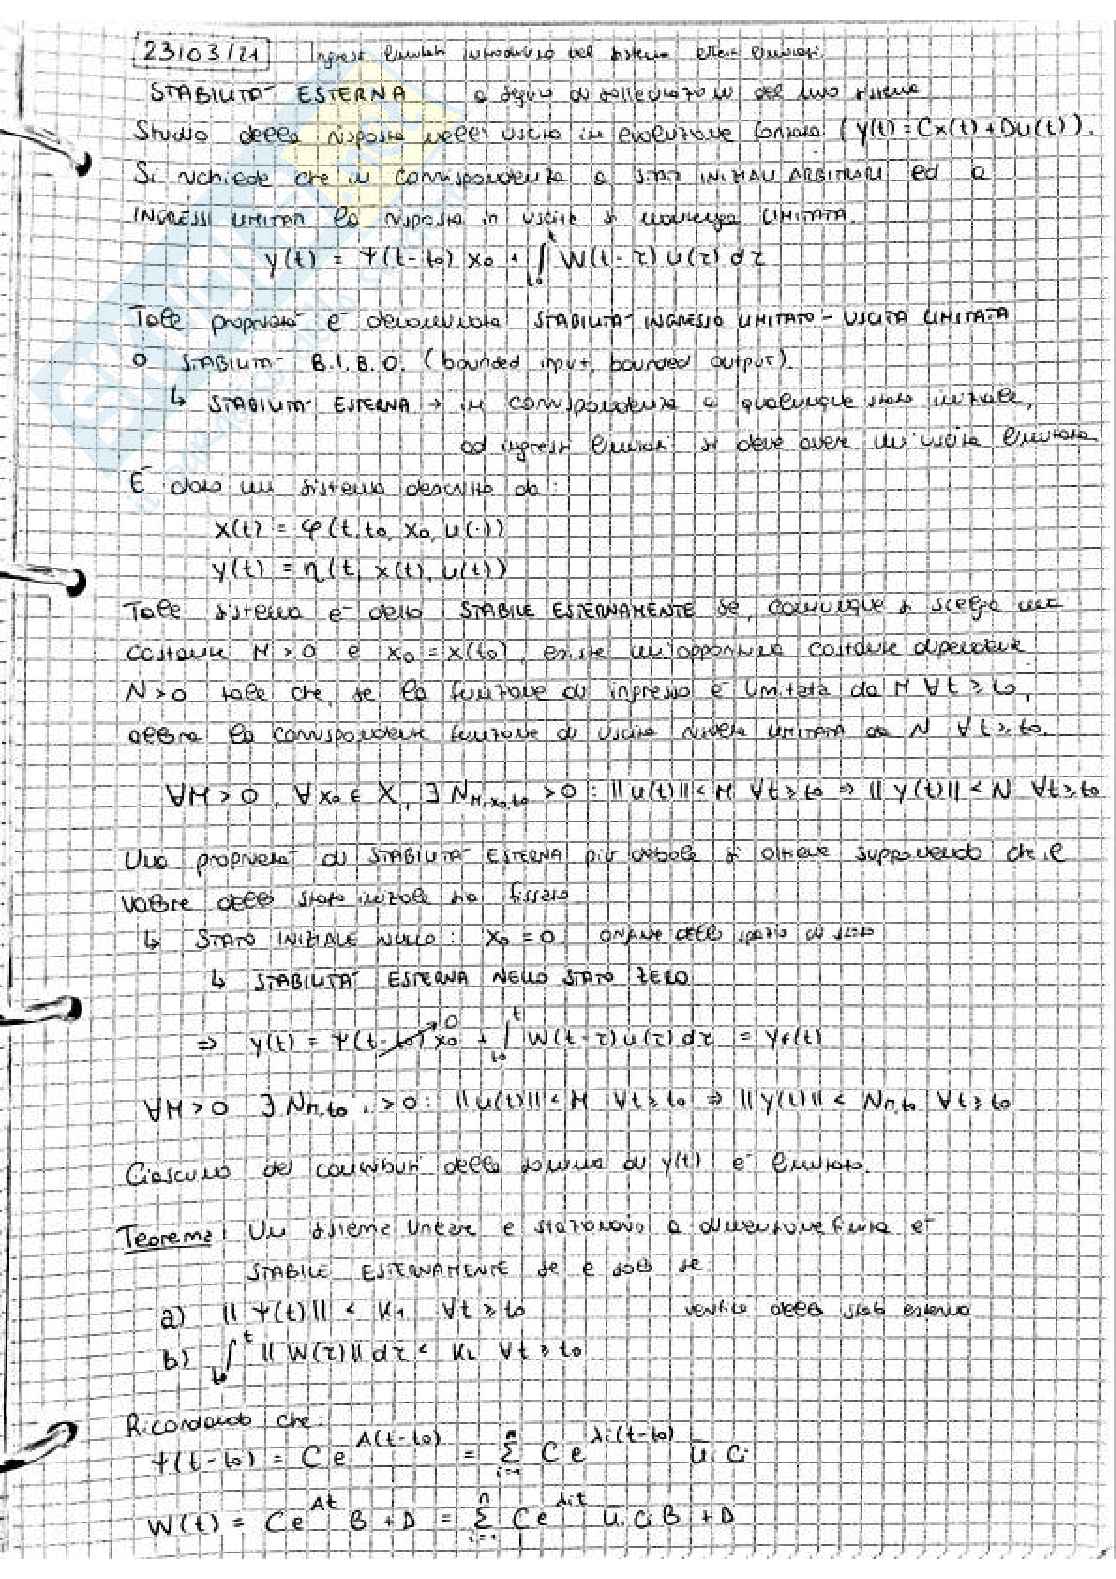 23/03/21 Ingressi limitati introducono nel sistema effetti limitati.
STABILITA' ESTERNA a seguito di sollecitazioni del mio sistema
Studio della risposta nell'uscita in evoluzione forzata (y(t) = Cx(t) + Du(t)).
Si richiede che in corrispondenza a STATI INIZIALI ARBITRARI ed a
INGRESSI LIMITATI la risposta in uscita si mantenga LIMITATA.
y(t) = Ψ(t-t₀) x₀ + ∫ₜ₀ᵗ W(t-τ) u(τ) dτ
Tale proprietà è denominata STABILITA' INGRESSO LIMITATO - USCITA LIMITATA
O STABILITA' B.I.B.O. (bounded input, bounded output).
↳ STABILITA' ESTERNA → in corrispondenza a qualunque stato iniziale,
ad ingressi limitati si deve avere un'uscita limitata
È dato un sistema descritto da:
x(t) = φ(t, t₀, x₀, u(·))
y(t) = η(t, x(t), u(t))
Tale sistema è detto STABILE ESTERNAMENTE se, comunque si scelga una
costante M > 0 e x₀ = x(t₀), esiste un'opportuna costante dipendente
N > 0 tale che, se la funzione di ingresso è limitata da M ∀t ≥ t₀,
allora la corrispondente funzione di uscita risulta LIMITATA da N ∀t ≥ t₀.
∀M > 0, ∀x₀ ∈ X, ∃ N_M,x₀,t₀ > 0 : ||u(t)|| < M ∀t ≥ t₀ ⇒ ||y(t)|| < N ∀t ≥ t₀
Una proprietà di STABILITA' ESTERNA più debole si ottiene supponendo che il
valore dello stato iniziale sia fissato
↳ STATO INIZIALE NULLO : x₀ = 0 origine dello spazio di stato
↳ STABILITA' ESTERNA NELLO STATO ZERO
⇒ y(t) = Ψ(t-t₀) x₀ 0 + ∫ₜ₀ᵗ W(t-τ) u(τ) dτ = yf(t)
∀M > 0 ∃ N_M,t₀ > 0 : ||u(t)|| < M ∀t ≥ t₀ ⇒ ||y(t)|| < N_M,t₀ ∀t ≥ t₀
Ciascuno dei contributi della somma di y(t) è limitato.
Teorema: Un sistema lineare e stazionario a dimensione finita è
STABILE ESTERNAMENTE se e solo se
a) ||Ψ(t)|| < K₁ ∀t ≥ t₀ verifica della stab esterna
b) ∫ₜ₀ᵗ ||W(τ)|| dτ < K₂ ∀t ≥ t₀
Ricordando che
Ψ(t-t₀) = C e^A(t-t₀) = Σⁿᵢ₌₁ C e^λi(t-t₀) ui Ci
W(t) = C e^At B + D = Σⁿᵢ₌₁ C e^λit ui Ci B + D